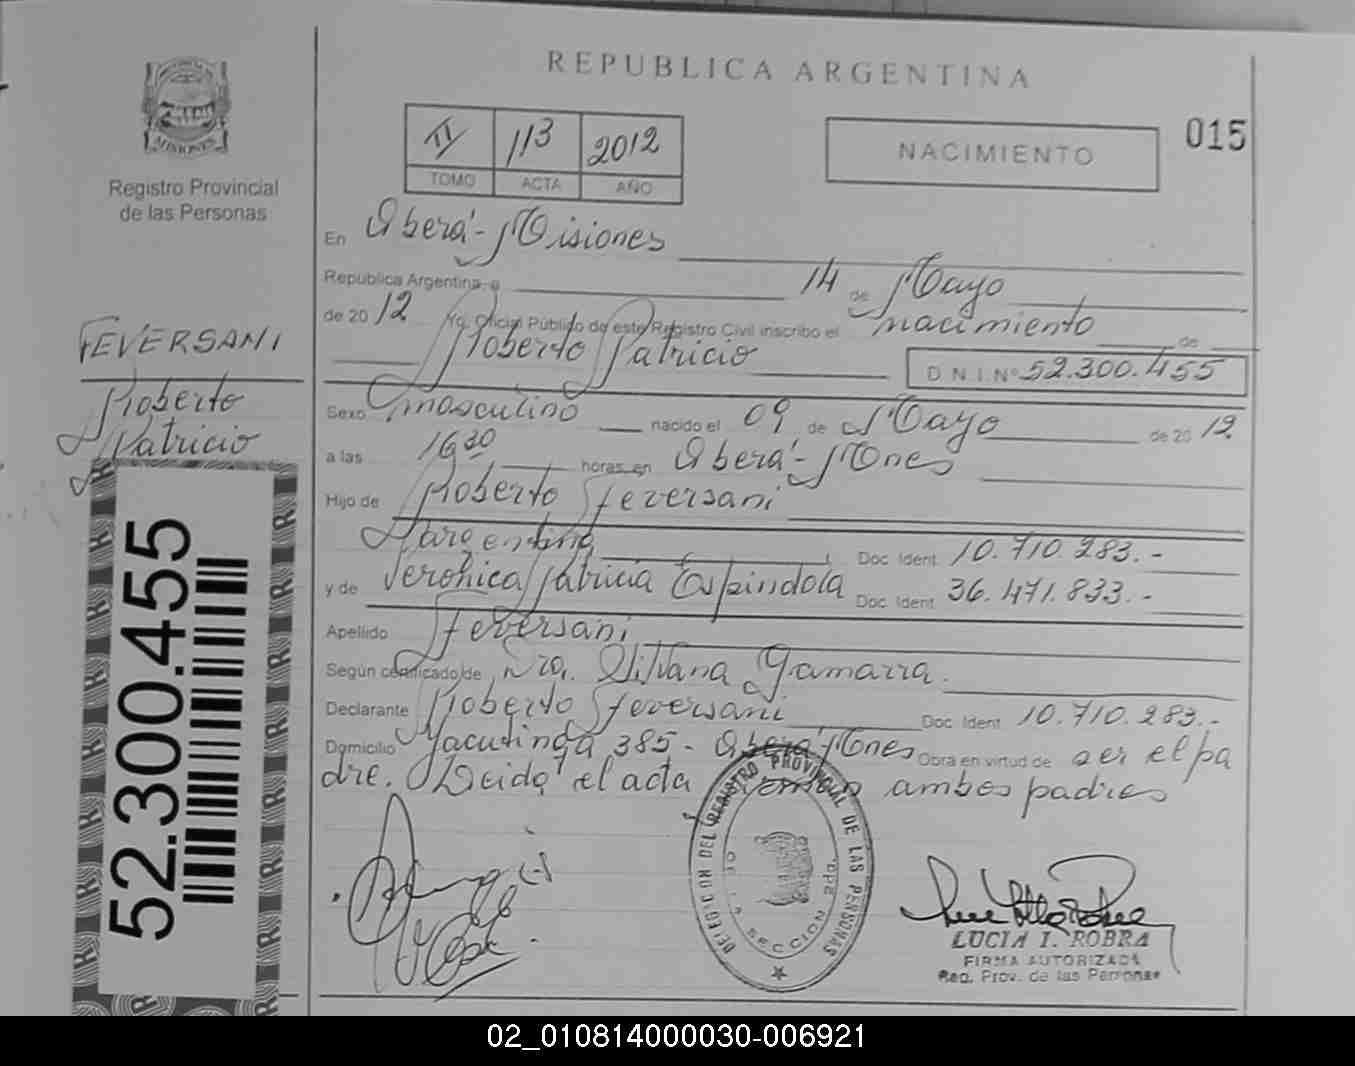 REPUBLICA ARGENTINA
MISIONES
Registro Provincial
de las Personas
II 113 2012
TOMO ACTA AÑO
NACIMIENTO
015
En Oberá - Misiones
Republica Argentina a 14 de Mayo
de 2012 Yo, Oficial Público de este Registro Civil inscribo el nacimiento de
Roberto Patricio D.N.I.Nº 52.300.455
FEVERSANI
Roberto
Patricio
Sexo masculino nacido el 09 de Mayo de 2012
a las 16 30 horas en Oberá - Mnes
Hijo de Roberto Feversani
argentina Doc. Ident. 10.710.283.-
y de Veronica Patricia Espindola Doc. Ident. 36.471.833.-
Apellido Feversani
Según certificado de Dra. Silvana Gamarra.
Declarante Roberto Feversani Doc. Ident. 10.710.283.-
Domicilio Yacutinga 385 - Oberá Mnes Obra en virtud de ser el pa
dre. Leida el acta firman ambos padres
52.300.455
DELEGACION DEL REGISTRO PROVINCIAL DE LAS PERSONAS
SECCION
LUCIA I. ROBRA
FIRMA AUTORIZADA
Reg. Prov. de las Personas
02_010814000030-006921